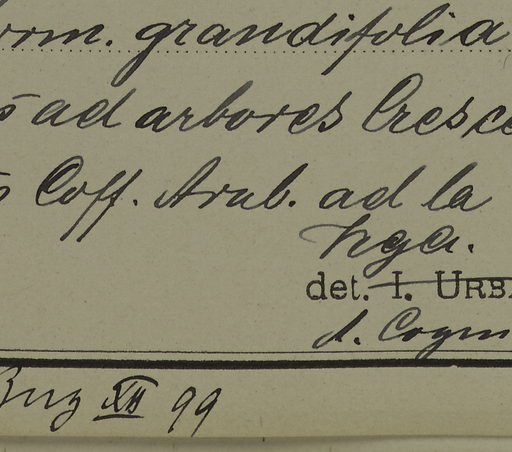 form. grandifolia
ad arbores Cresce
Coff. Arab. ad la
Hga.
det. I. URB
A. Cogn
Buz XII 99